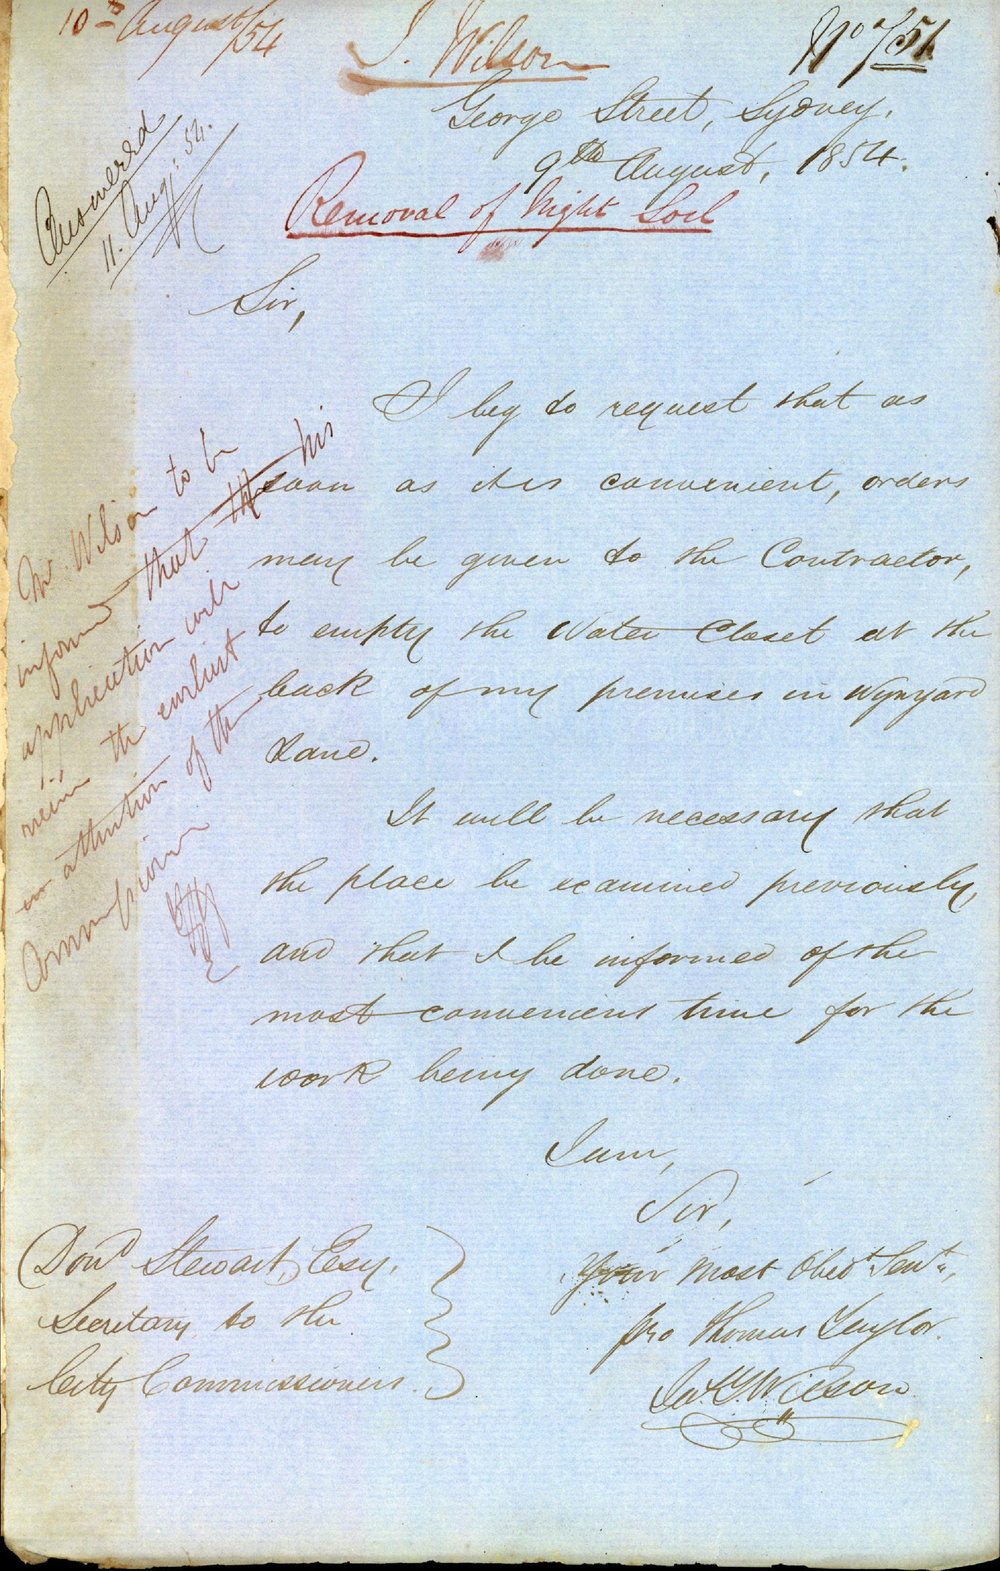 10th August/54
J. Wilson
No 7/51
George Street, Sydney.
9th August, 1854.
Answered
11. Aug: 54.
Removal of Night Soil
Sir,
I beg to request that as
soon as it is convenient, orders
may be given to the Contractor,
to empty the Water Closet at the
back of my premises in Wynyard
Lane.
It will be necessary that
the place be examined previously,
and that I be informed of the
most convenient time for the
work being done.
I am,
Sir,
Your most Obedt Servt,
pro Thomas Taylor.
Wilson
Mr Wilson to be
informed that his
application will
receive the earliest
attention of the
Commissioners
Dond Stewart, Esq.
Secretary to the
City Commissioners.